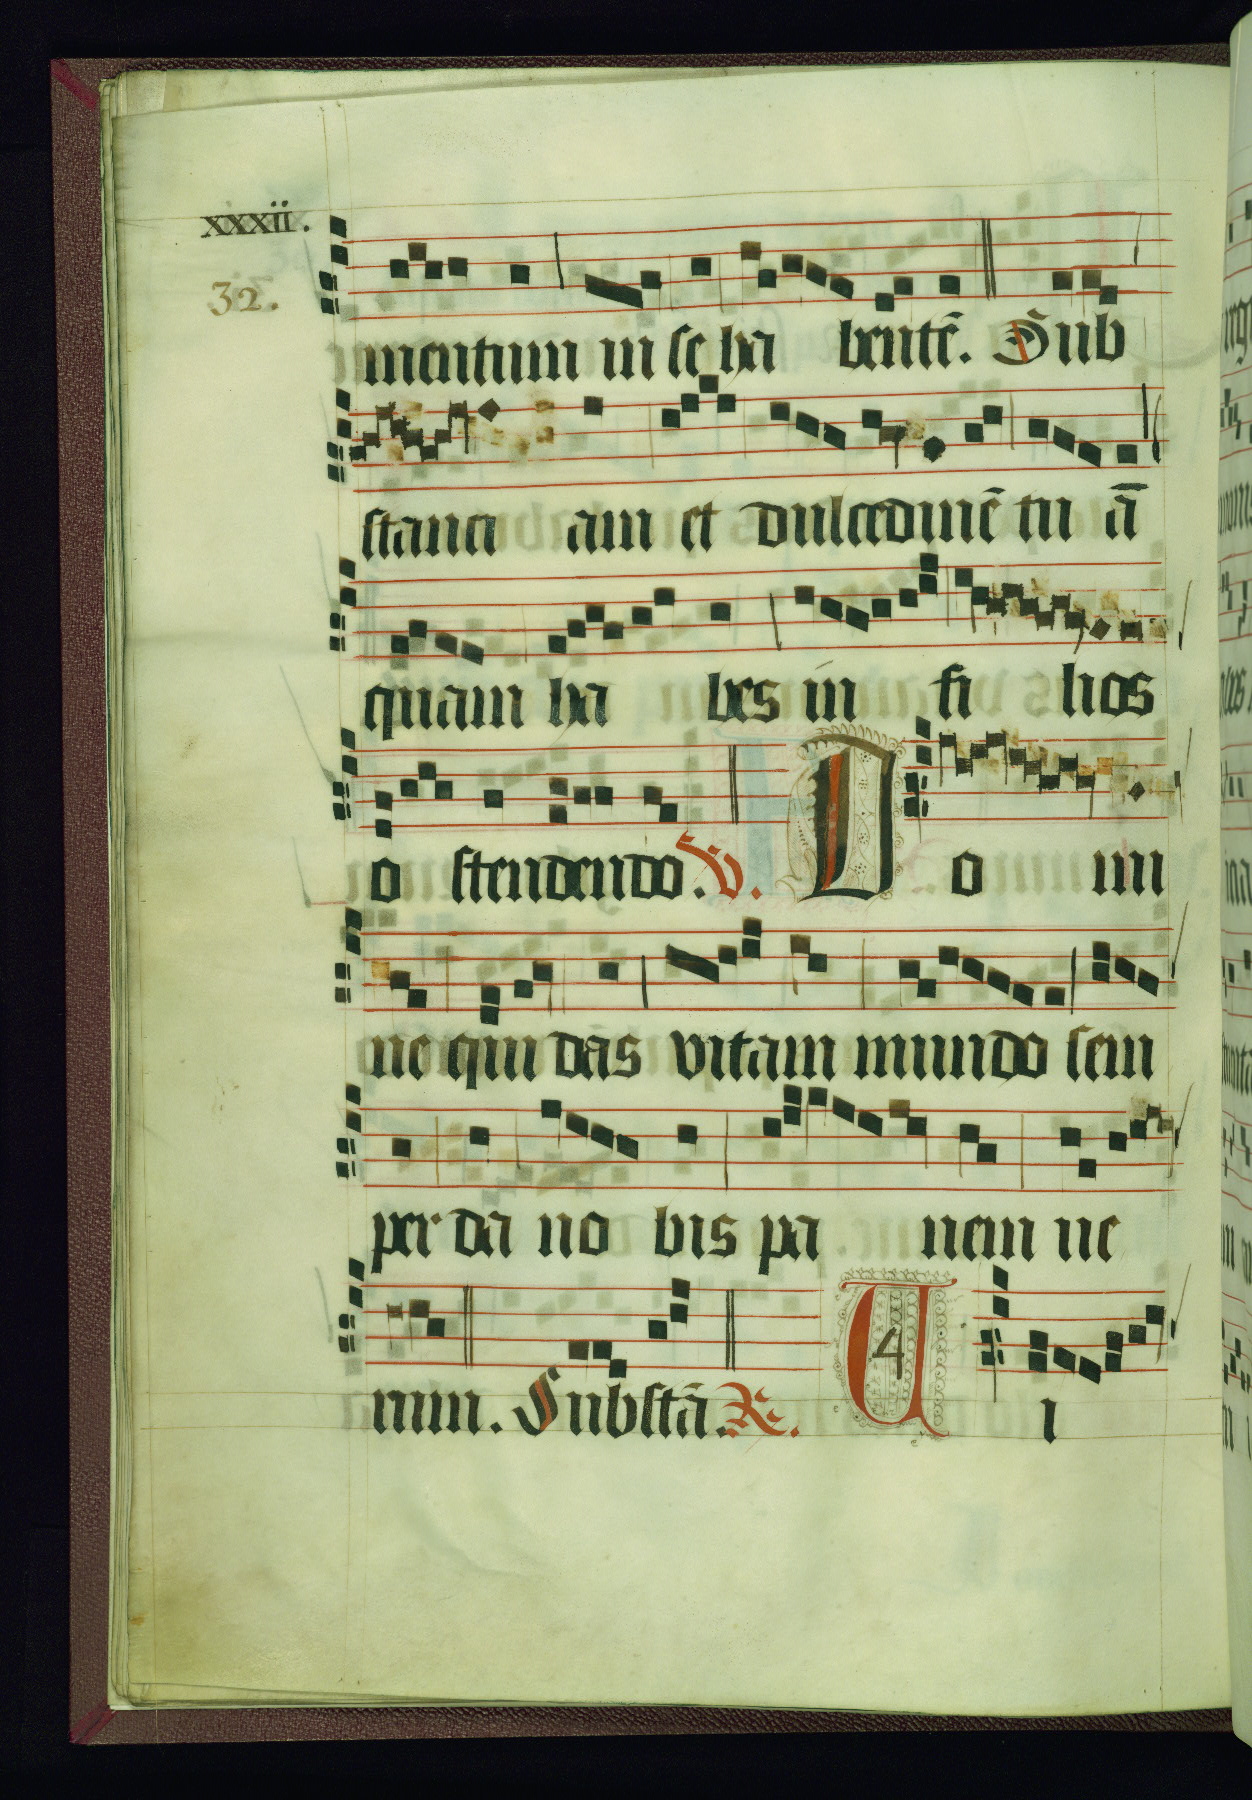 xxxii.
32.
mentum in se ha bentē. Sub
stanci am et dulcedinē tu ā
quam ha bes in fi lios
o stendendo. V. D o mi
ne qui das vitam mundo sem
per da no bis pa nem ne
mm. Substā. R. U i
4